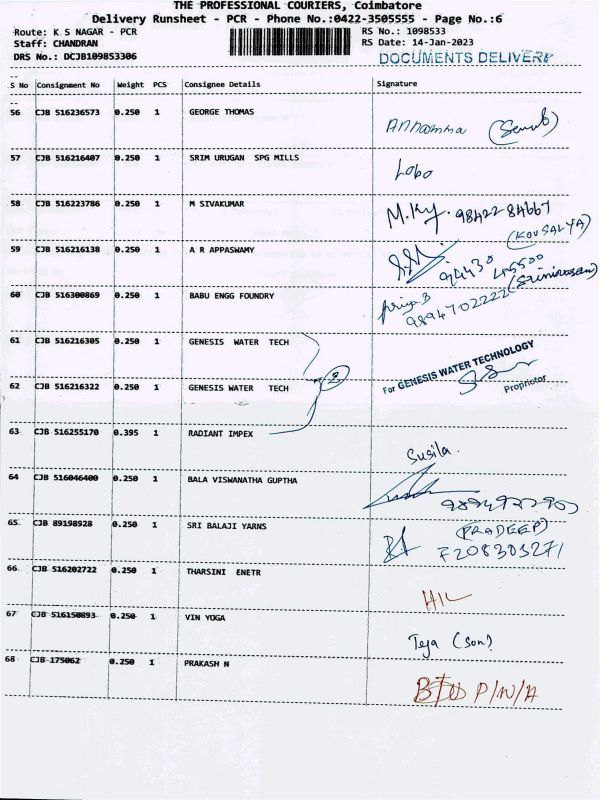 THE PROFESSIONAL COURIERS, Coimbatore
Delivery Runsheet - PCR - Phone No.:0422-3505555 - Page No.:6
Route: K S NAGAR - PCR
RS No.: 1098533
Staff: CHANDRAN
RS Date: 14-Jan-2023
DRS No.: DCJB109853306
DOCUMENTS DELIVERY
S No Consignment No Weight PCS Consignee Details Signature
56 CJB 516236573 0.250 1 GEORGE THOMAS
Annamma
57 CJB 516216407 0.250 1 SRIM URUGAN SPG MILLS
Lobo
58 CJB 516223786 0.250 1 M SIVAKUMAR
M.Ky. 9842284667
(KOUSALYA)
59 CJB 516216138 0.250 1 A R APPASWAMY
94430 45500
(Srinivasan)
60 CJB 516300869 0.250 1 BABU ENGG FOUNDRY
Priya.B
9894702222
61 CJB 516216305 0.250 1 GENESIS WATER TECH
62 CJB 516216322 0.250 1 GENESIS WATER TECH
For GENESIS WATER TECHNOLOGY
Proprietor
63 CJB 516255170 0.395 1 RADIANT IMPEX
Susila.
64 CJB 516046400 0.250 1 BALA VISWANATHA GUPTHA
65 CJB 89198928 0.250 1 SRI BALAJI YARNS
(PRADEEP)
7208303271
66 CJB 516202722 0.250 1 THARSINI ENETR
H/L
67 CJB 516150893 0.250 1 VIN YOGA
Teja (Son)
68 CJB 175062 0.250 1 PRAKASH N
P/N/A